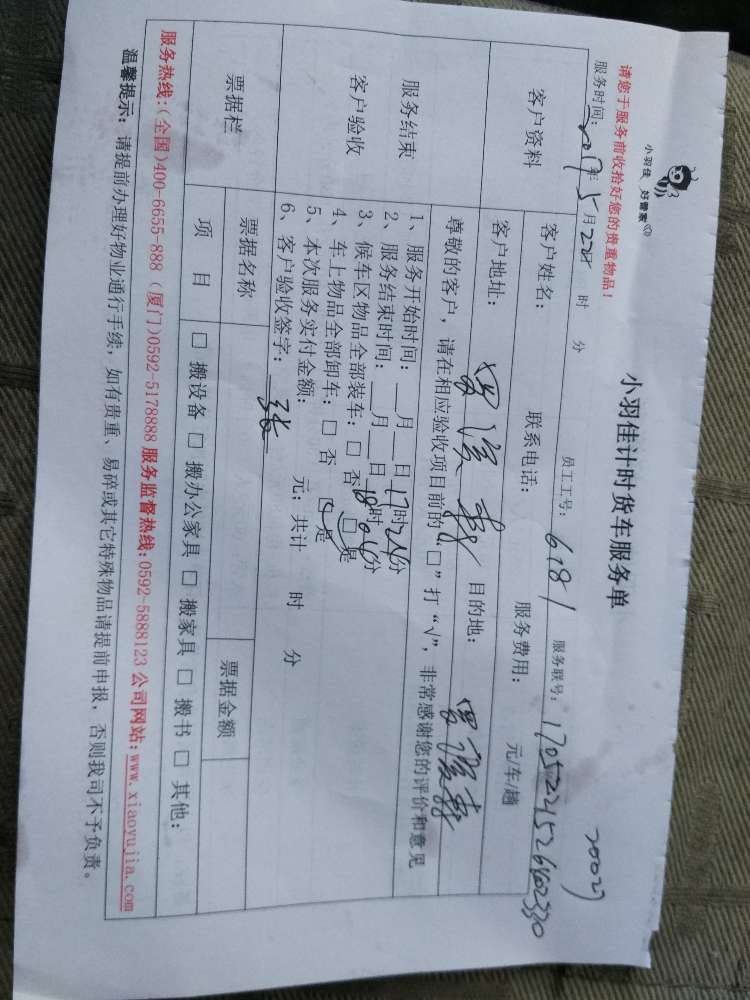 小羽佳 好管家
小羽佳计时货车服务单
20027
请您于服务前收拾好您的贵重物品!
服务时间: 2017年5月22日 时 分 员工工号: 6181 服务联号: 170522152640230
客户资料 客户姓名: 联系电话: 服务费用: 元/车/趟
客户地址: 目的地:
尊敬的客户,请在相应验收项目前的“□”打“√”,非常感谢您的评价和意见
服务结束
客户验收
1、服务开始时间:__月__日17时24分
2、服务结束时间:__月__日18时04分
3、候车区物品全部装车:□ 否 □ 是
4、车上物品全部卸车:□ 否 □ 是
5、本次服务实付金额: 元;共计 时 分
6、客户验收签字: 张
票据栏 票据名称 票据金额
项 目 □ 搬设备 □ 搬办公家具 □ 搬家具 □ 搬书 □ 其他:
服务热线:(全国)400-6655-888 (厦门)0592-5178888 服务监督热线:0592-5888123 公司网站:www.xiaoyujia.com
温馨提示: 请提前办理好物业通行手续,如有贵重、易碎或其它特殊物品请提前申报,否则我司不予负责。